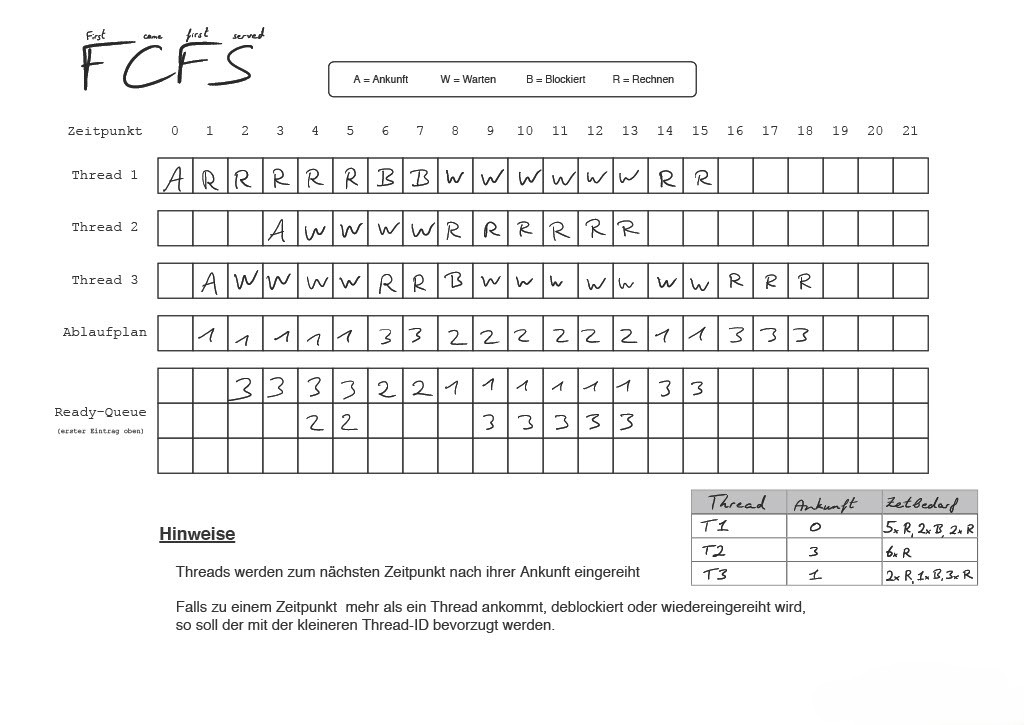 First came first served
FCFS
A = Ankunft W = Warten B = Blockiert R = Rechnen
Zeitpunkt 0 1 2 3 4 5 6 7 8 9 10 11 12 13 14 15 16 17 18 19 20 21
Thread 1 A R R R R R B B W W W W W W R R
Thread 2 A W W W W R R R R R R
Thread 3 A W W W W R R B W W W W W W W R R R
Ablaufplan 1 1 1 1 1 3 3 2 2 2 2 2 2 1 1 3 3 3
3 3 3 3 2 2 1 1 1 1 1 1 3 3
Ready-Queue 2 2 3 3 3 3 3
(erster Eintrag oben)
Thread Ankunft Zetbedarf
T1 0 5x R, 2x B, 2x R
T2 3 6x R
T3 1 2x R, 1x B, 3x R
Hinweise
Threads werden zum nächsten Zeitpunkt nach ihrer Ankunft eingereiht
Falls zu einem Zeitpunkt mehr als ein Thread ankommt, deblockiert oder wiedereingereiht wird,
so soll der mit der kleineren Thread-ID bevorzugt werden.